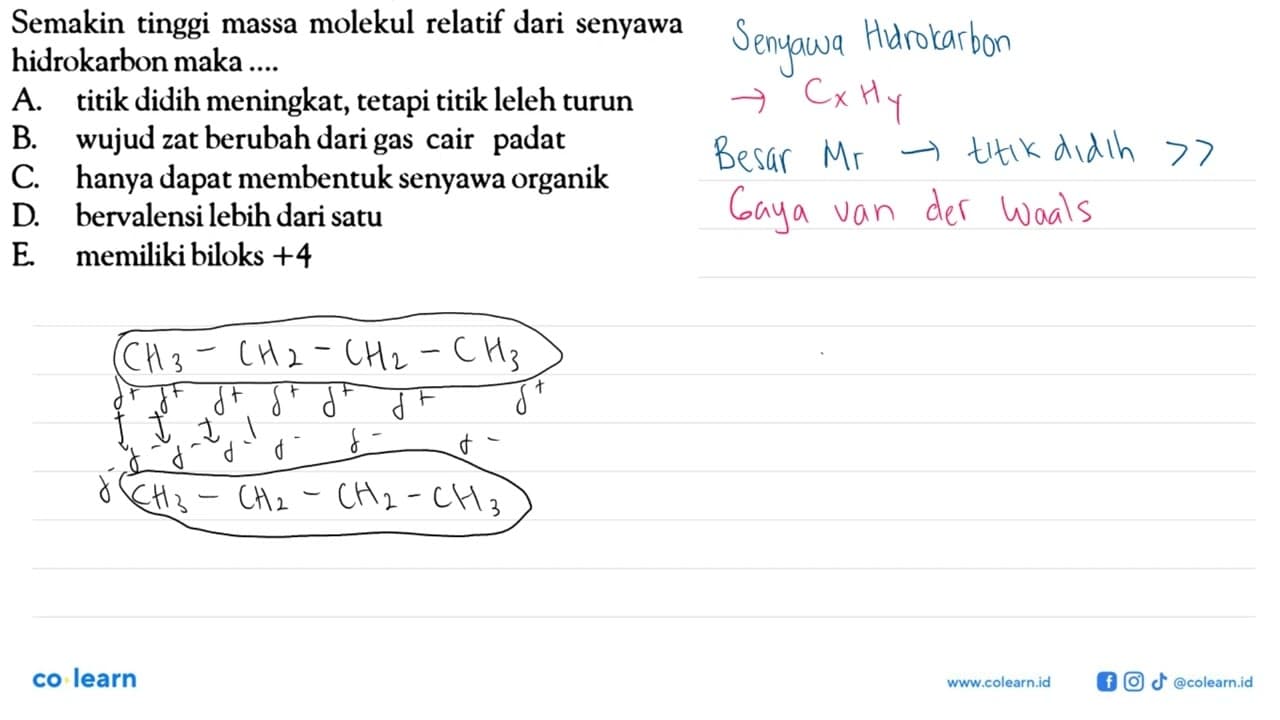 Semakin tinggi massa molekul relatif dari senyawa
hidrokarbon maka ....
A. titik didih meningkat, tetapi titik leleh turun
B. wujud zat berubah dari gas cair padat
C. hanya dapat membentuk senyawa organik
D. bervalensi lebih dari satu
E. memiliki biloks +4
Senyawa Hidrokarbon
→ CxHy
Besar Mr → titik didih >>
Gaya van der Waals
CH3 - CH2 - CH2 - CH3
δ+ δ+ δ+ δ+ δ+ δ+ δ+
δ- δ- δ- δ- δ- δ-
δ- CH3 - CH2 - CH2 - CH3
co learn
www.colearn.id
@colearn.id